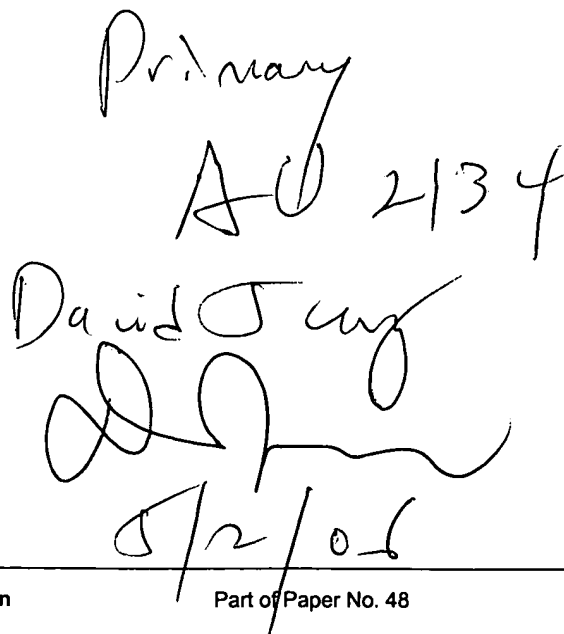 Primary
AU 2134
David Jung
5/2/06
n Part of Paper No. 48